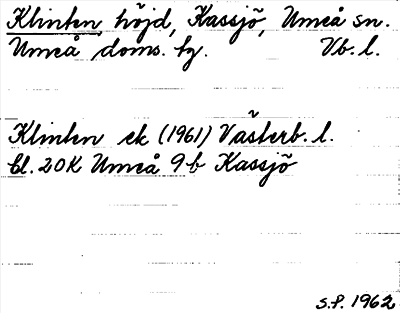 Klinten höjd, Kassjö, Umeå sn.
Umeå doms. hg. Vb. l.
Klinten ek (1961) Västerb. l.
bl. 20K Umeå 9b Kassjö
S.P. 1962